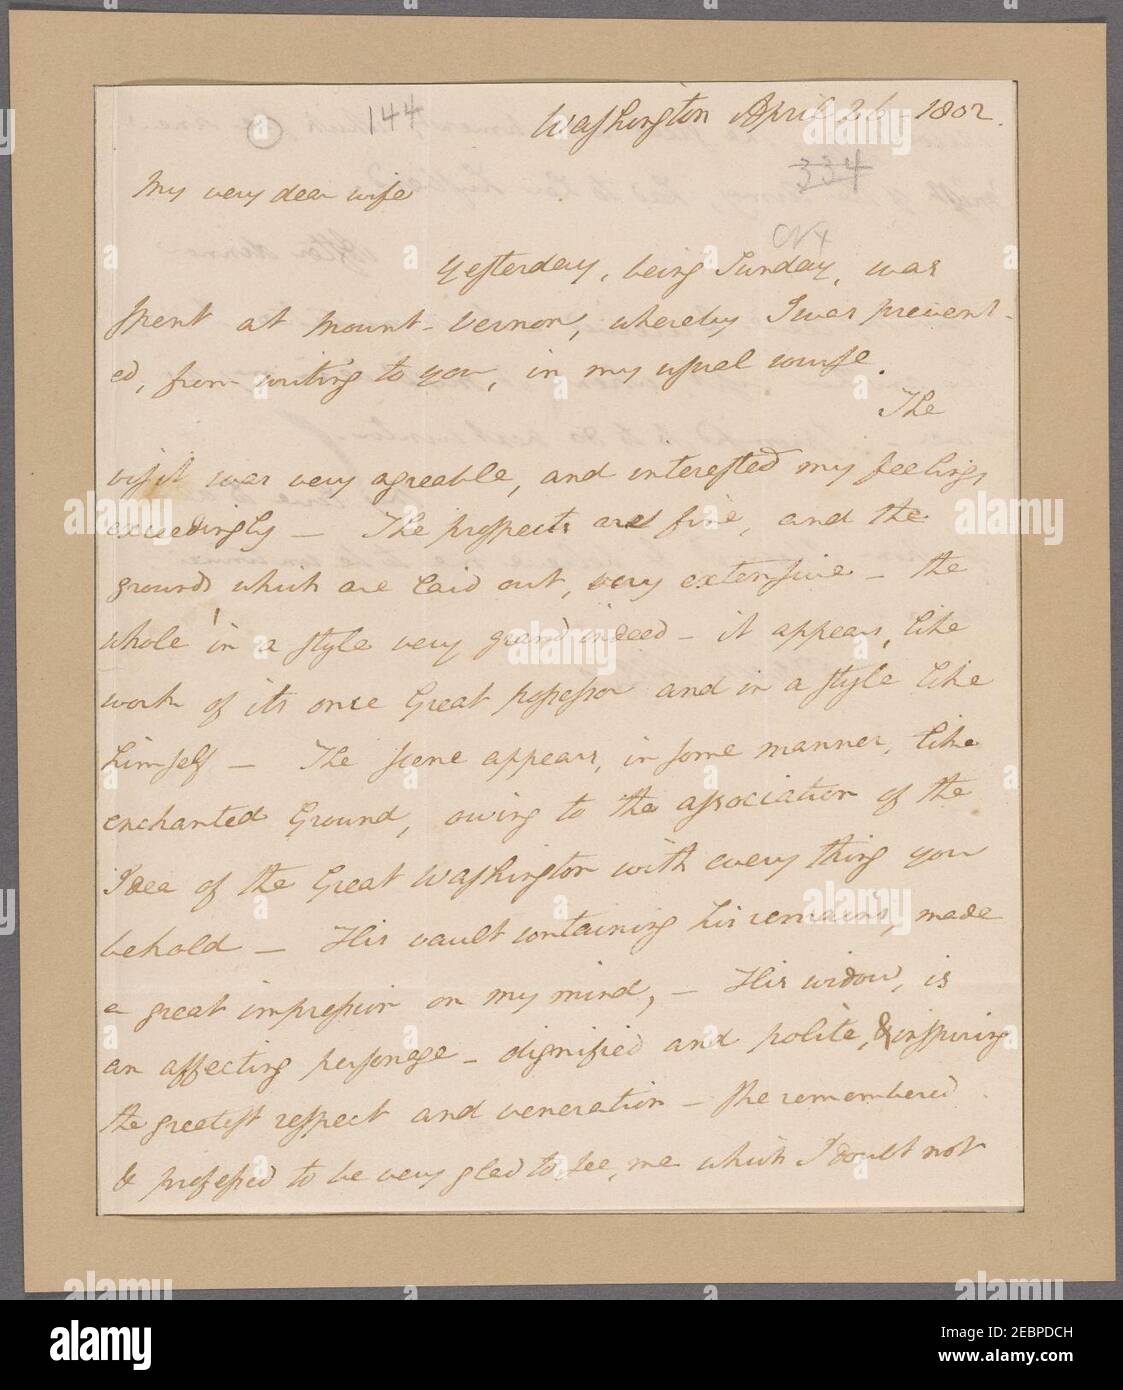 144
Washington April 26 - 1802.
334
My very dear wife
Yesterday, being Sunday, was
spent at Mount-Vernon, whereby I was prevent-
ed, from writing to you, in my usual course.
The
visit was very agreable, and interested my feelings
exceedingly — The prospects are fine, and the
grounds which are laid out, very extensive — the
whole in a style very grand indeed — it appears, like
work of its once Great possessor and in a style like
himself — The scene appears, in some manner, like
enchanted Ground, owing to the association of the
Idea of the Great Washington with every thing you
behold — His vault containing his remains, made
a great impression on my mind, — His widow, is
an affecting personage — dignified and polite, & inspiring
the greatest respect and veneration — She remembered
& professed to be very glad to see, me which I doubt not
alamy
alamy
Image ID: 2EBPDCH
www.alamy.com